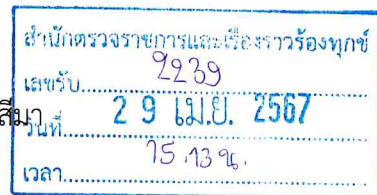 สำนักตรวจราชการและเรื่องราวร้องทุกข์
เลขรับ 2239
สีมา
วันที่ 29 เม.ย. 2567
เวลา 15.13 น.